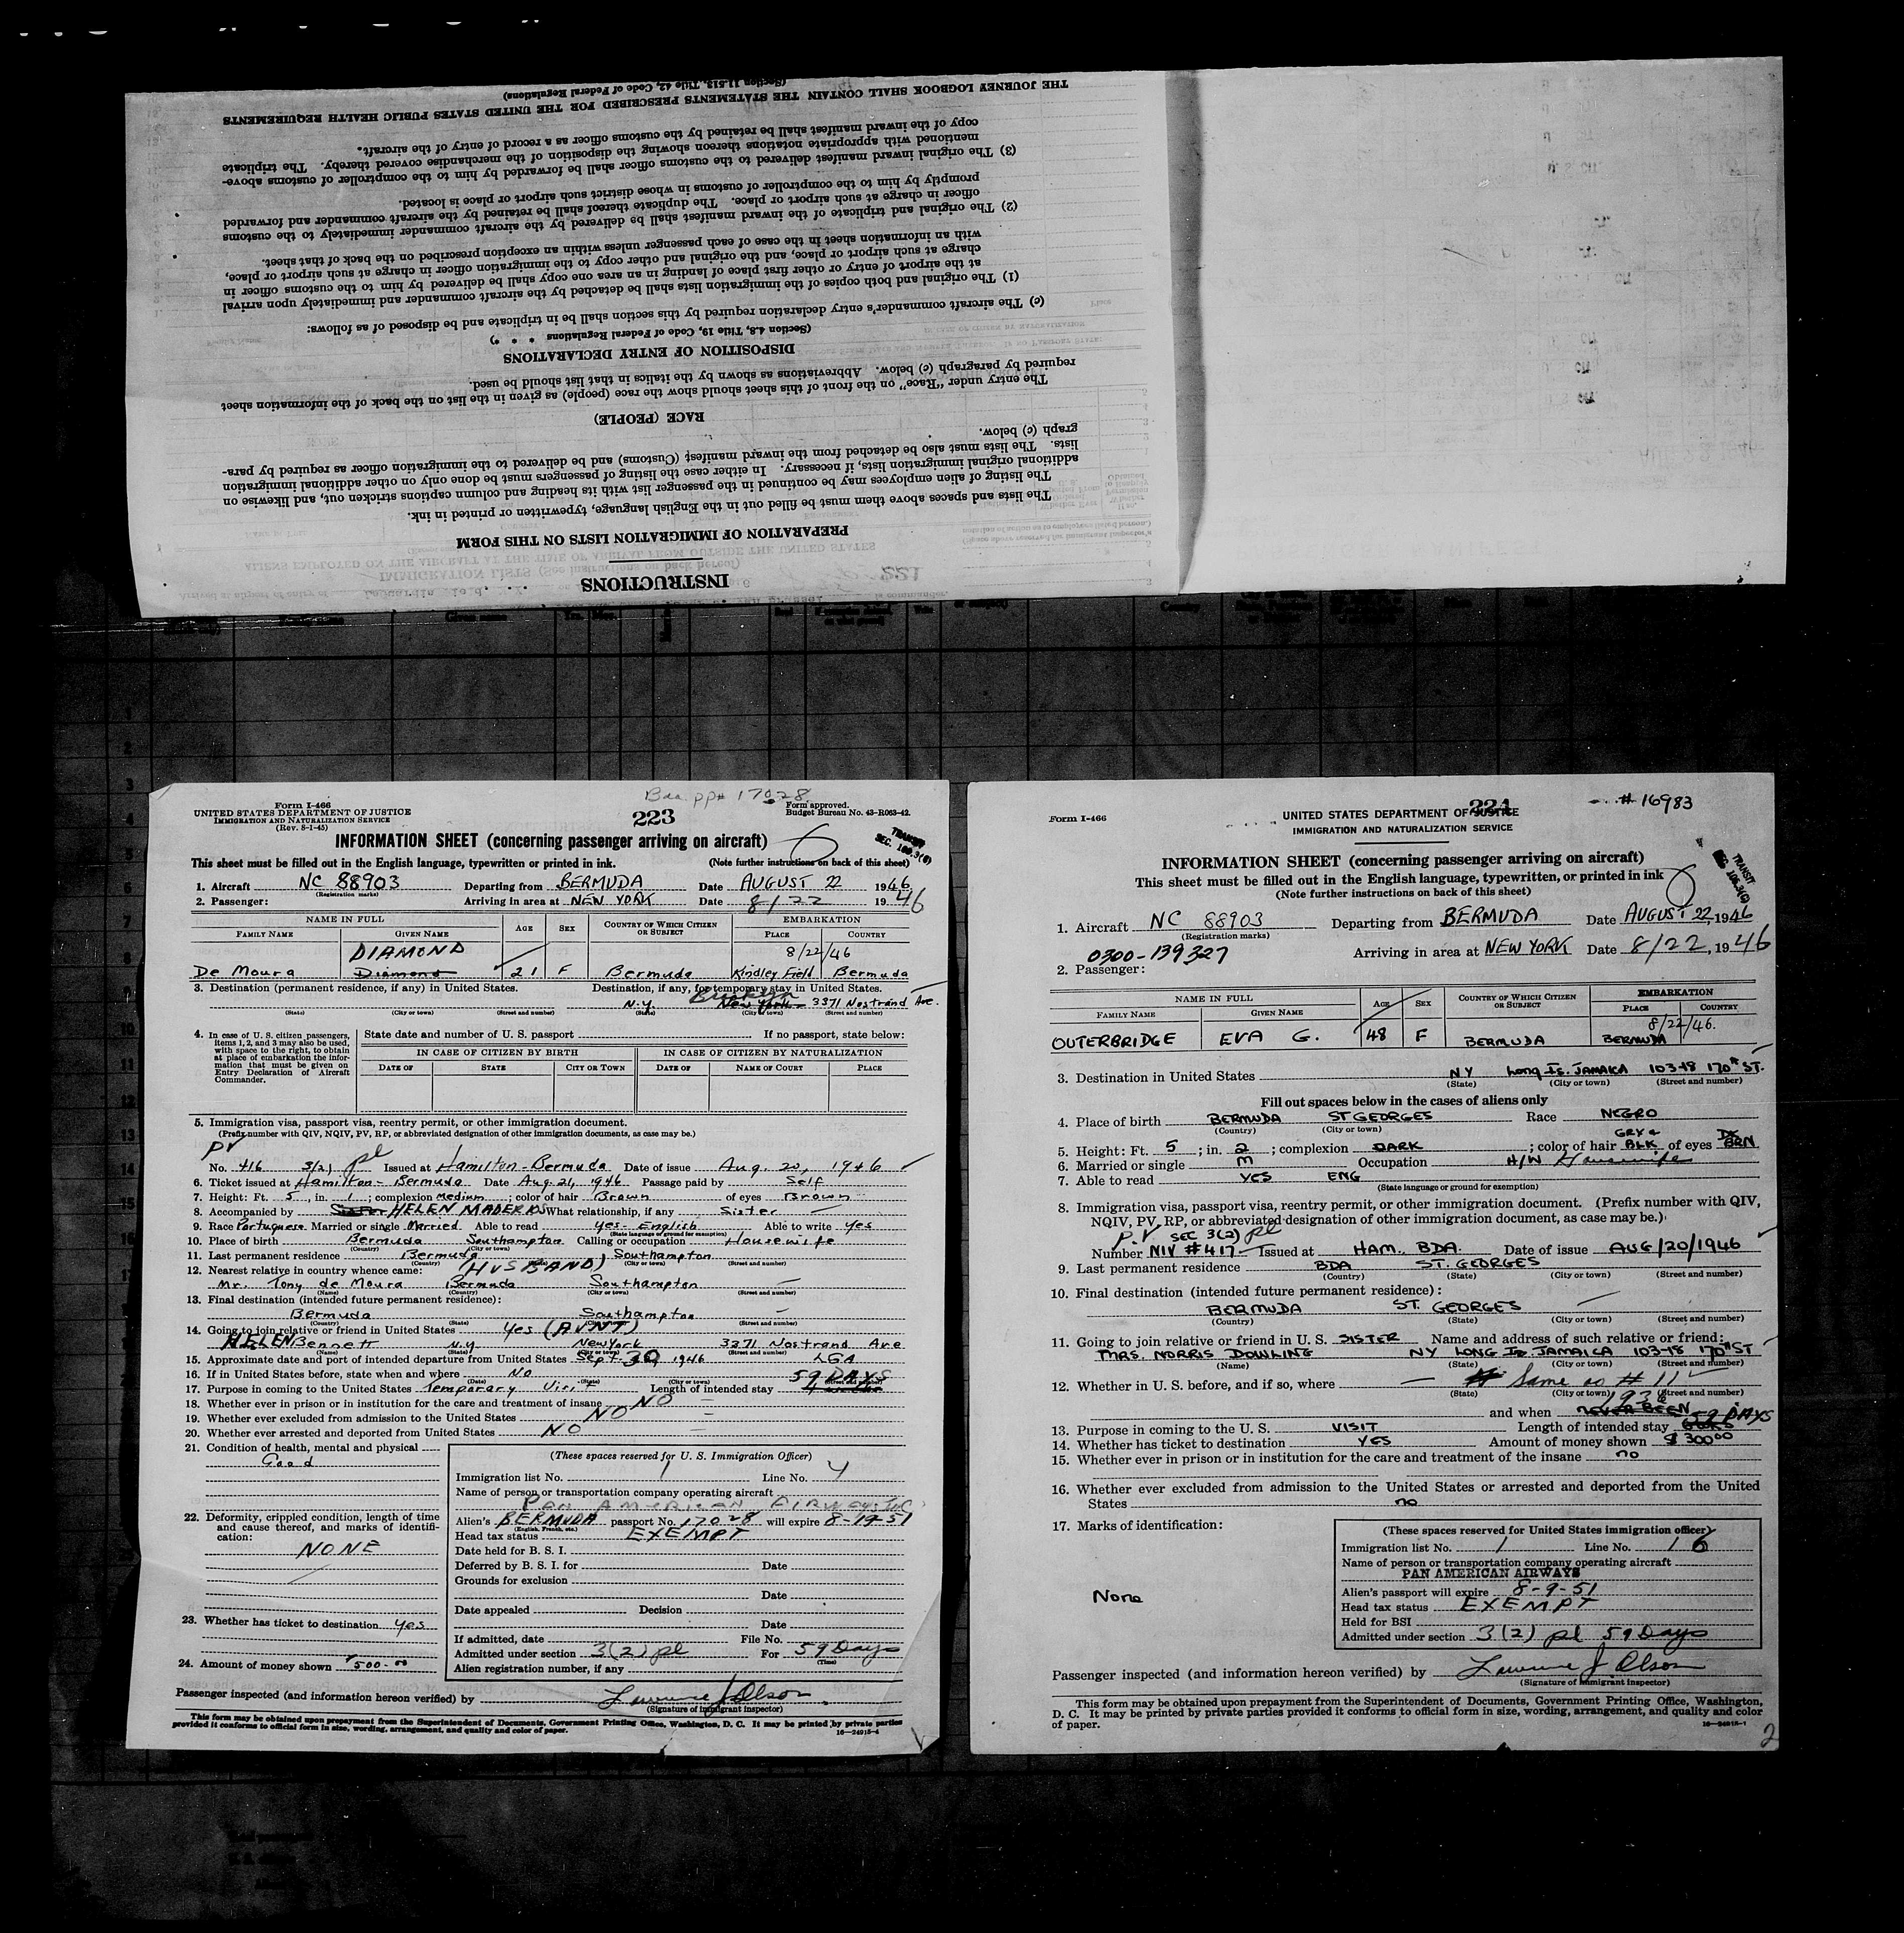 INSTRUCTIONS
PREPARATION OF IMMIGRATION LISTS ON THIS FORM
The lists and spaces above them must be filled out in the English language, typewritten or printed in ink.
The listing of alien employees may be continued in the passenger list with its heading and column captions stricken out, and likewise on
additional original immigration lists, if necessary. In either case the listing of passengers must be done only on other additional immigration
lists. The lists must also be detached from the inward manifest (Customs) and be delivered to the immigration officer as required by para-
graph (c) below.
RACE (PEOPLE)
The entry under "Race" on the front of this sheet should show the race (people) as given in the list on the back of the information sheet
required by paragraph (c) below. Abbreviations as shown by the italics in that list should be used.
DISPOSITION OF ENTRY DECLARATIONS
(Section 4.8, Title 19, Code of Federal Regulations * * *)
(c) The aircraft commander's entry declaration required by this section shall be in triplicate and be disposed of as follows:
(1) The original and both copies of the immigration lists shall be detached by the aircraft commander and immediately upon arrival
at the airport of entry or other first place of landing in an area one copy shall be delivered by him to the customs officer in
charge at such airport or place, and the original and other copy to the immigration officer in charge at such airport or place,
with an information sheet in the case of each passenger unless within an exception prescribed on the back of that sheet.
(2) The original and triplicate of the inward manifest shall be delivered by the aircraft commander immediately to the customs
officer in charge at such airport or place. The duplicate thereof shall be retained by the aircraft commander and forwarded
promptly by him to the comptroller of customs in whose district such airport or place is located.
(3) The original inward manifest delivered to the customs officer shall be forwarded by him to the comptroller of customs above-
mentioned with appropriate notations thereon showing the disposition of the merchandise covered thereby. The triplicate
copy of the inward manifest shall be retained by the customs officer as a record of entry of the aircraft.
THE JOURNEY LOGBOOK SHALL CONTAIN THE STATEMENTS PRESCRIBED FOR THE UNITED STATES PUBLIC HEALTH REQUIREMENTS
(Section 11.513, Title 42, Code of Federal Regulations)
Bda. pp# 17028
Form I-466
UNITED STATES DEPARTMENT OF JUSTICE
IMMIGRATION AND NATURALIZATION SERVICE
(Rev. 8-1-45)
223
Form approved.
Budget Bureau No. 43-R063-42.
INFORMATION SHEET (concerning passenger arriving on aircraft)
TRANSIT
SEC. 106.3(6)
This sheet must be filled out in the English language, typewritten or printed in ink. (Note further instructions on back of this sheet)
1. Aircraft NC 88903 Departing from BERMUDA Date AUGUST 22 1946
(Registration marks)
2. Passenger: Arriving in area at NEW YORK Date 8/22 1946
NAME IN FULL AGE SEX COUNTRY OF WHICH CITIZEN OR SUBJECT EMBARKATION
FAMILY NAME GIVEN NAME PLACE COUNTRY
DIAMOND 8/22/46
De Moura Diamond 21 F Bermuda Kindley Field Bermuda
3. Destination (permanent residence, if any) in United States. Destination, if any, for temporary stay in United States.
N.Y. Brooklyn New York 3371 Nostrand Ave.
(State) (City or town) (Street and number) (State) (City or town) (Street and number)
4. In case of U. S. citizen passengers, items 1, 2, and 3 may also be used, with space to the right, to obtain at place of embarkation the information that must be given on Entry Declaration of Aircraft Commander.
State date and number of U. S. passport If no passport, state below:
IN CASE OF CITIZEN BY BIRTH IN CASE OF CITIZEN BY NATURALIZATION
DATE OF STATE CITY OR TOWN DATE OF NAME OF COURT PLACE
5. Immigration visa, passport visa, reentry permit, or other immigration document.
(Prefix number with QIV, NQIV, PV, RP, or abbreviated designation of other immigration documents, as case may be.)
PV
No. 416 3(2) pl Issued at Hamilton-Bermuda Date of issue Aug. 20, 1946
6. Ticket issued at Hamilton-Bermuda Date Aug. 21, 1946 Passage paid by Self
7. Height: Ft. 5, in. 1; complexion medium; color of hair Brown of eyes Brown
8. Accompanied by Sister HELEN MADERIOS What relationship, if any Sister
9. Race Portuguese Married or single Married Able to read yes- English Able to write yes
(State language or ground for exemption)
10. Place of birth Bermuda Southampton Calling or occupation Housewife
(Country) (City or town)
11. Last permanent residence Bermuda Southampton
(Country) (City or town) (Street and number)
12. Nearest relative in country whence came: (HUSBAND)
Mr. Tony de Moura Bermuda Southampton
(Name) (Country) (City or town) (Street and number)
13. Final destination (intended future permanent residence):
Bermuda Southampton
(Country) (State) (City or town) (Street and number)
14. Going to join relative or friend in United States Yes (AUNT)
HELEN Bennett N.Y. New York 3371 Nostrand Ave
(Name) (State) (City or town) (Street and number)
15. Approximate date and port of intended departure from United States Sept. 30, 1946 LGA
16. If in United States before, state when and where NO
(Date) (State) (City or town) (Street and number)
59 DAYS
17. Purpose in coming to the United States Temporary Visit Length of intended stay
18. Whether ever in prison or in institution for the care and treatment of insane NO
19. Whether ever excluded from admission to the United States NO
20. Whether ever arrested and deported from United States NO
21. Condition of health, mental and physical
Good
22. Deformity, crippled condition, length of time and cause thereof, and marks of identification:
NONE
23. Whether has ticket to destination yes
24. Amount of money shown $500.00
(These spaces reserved for U. S. Immigration Officer)
Immigration list No. 1 Line No. 4
Name of person or transportation company operating aircraft
PAN AMERICAN AIRWAYS INC
Alien's BERMUDA passport No. 17028 will expire 8-19-51
(English, French, etc.)
Head tax status EXEMPT
Date held for B. S. I.
Deferred by B. S. I. for Date
Grounds for exclusion
Date
Date appealed Decision
Date
If admitted, date File No.
Admitted under section 3(2) pl For 59 Days
(Time)
Alien registration number, if any
Passenger inspected (and information hereon verified) by Lawrence J. Olson
(Signature of immigrant inspector)
This form may be obtained upon prepayment from the Superintendent of Documents, Government Printing Office, Washington, D. C. It may be printed by private parties
provided it conforms to official form in size, wording, arrangement, and quality and color of paper. 16—24915-4
Form I-466
224
# 16983
UNITED STATES DEPARTMENT OF JUSTICE
IMMIGRATION AND NATURALIZATION SERVICE
TRANSIT
106.3(6)
INFORMATION SHEET (concerning passenger arriving on aircraft)
This sheet must be filled out in the English language, typewritten, or printed in ink
(Note further instructions on back of this sheet)
1. Aircraft NC 88903 Departing from BERMUDA Date AUGUST 22, 1946
(Registration marks)
0300-139327 Arriving in area at NEW YORK Date 8/22, 1946
2. Passenger:
NAME IN FULL AGE SEX COUNTRY OF WHICH CITIZEN OR SUBJECT EMBARKATION
FAMILY NAME GIVEN NAME PLACE COUNTRY
8/22/46.
OUTERBRIDGE EVA G. 48 F BERMUDA BERMUDA
3. Destination in United States NY Long Is. JAMAICA 103-18 170th ST.
(State) (City or town) (Street and number)
Fill out spaces below in the cases of aliens only
4. Place of birth BERMUDA ST GEORGES Race NEGRO
(Country) (City or town)
5. Height: Ft. 5; in. 2; complexion DARK; color of hair GRY & BLK of eyes DK BRN
6. Married or single M Occupation H/W Housewife
7. Able to read YES ENG
(State language or ground for exemption)
8. Immigration visa, passport visa, reentry permit, or other immigration document. (Prefix number with QIV,
NQIV, PV, RP, or abbreviated designation of other immigration document, as case may be.)
P.V SEC 3(2) pl
Number NIV #417 Issued at HAM., BDA. Date of issue AUG/20/1946
9. Last permanent residence BDA ST. GEORGES
(Country) (State) (City or town) (Street and number)
10. Final destination (intended future permanent residence):
BERMUDA ST. GEORGES
(Country) (State) (City or town) (Street and number)
11. Going to join relative or friend in U. S. SISTER Name and address of such relative or friend:
MRS. NORRIS DOWLING NY LONG Is. JAMAICA 103-18 170th ST
(Name) (State) (City or town) (Street and number)
12. Whether in U. S. before, and if so, where Same as # 11
(State) (City or town) (Street and number)
and when NEVER BEEN
13. Purpose in coming to the U. S. VISIT Length of intended stay 59 DAYS
14. Whether has ticket to destination YES Amount of money shown $300.00
15. Whether ever in prison or in institution for the care and treatment of the insane no
16. Whether ever excluded from admission to the United States or arrested and deported from the United
States no
17. Marks of identification:
None
(These spaces reserved for United States immigration officer)
Immigration list No. 1 Line No. 16
Name of person or transportation company operating aircraft
PAN AMERICAN AIRWAYS
Alien's passport will expire 8-9-51
Head tax status EXEMPT
Held for BSI
Admitted under section 3(2) pl 59 Days
Passenger inspected (and information hereon verified) by Lawrence J. Olson
(Signature of immigrant inspector)
This form may be obtained upon prepayment from the Superintendent of Documents, Government Printing Office, Washington,
D. C. It may be printed by private parties provided it conforms to official form in size, wording, arrangement, and quality and color
of paper. 16—24915-1
2